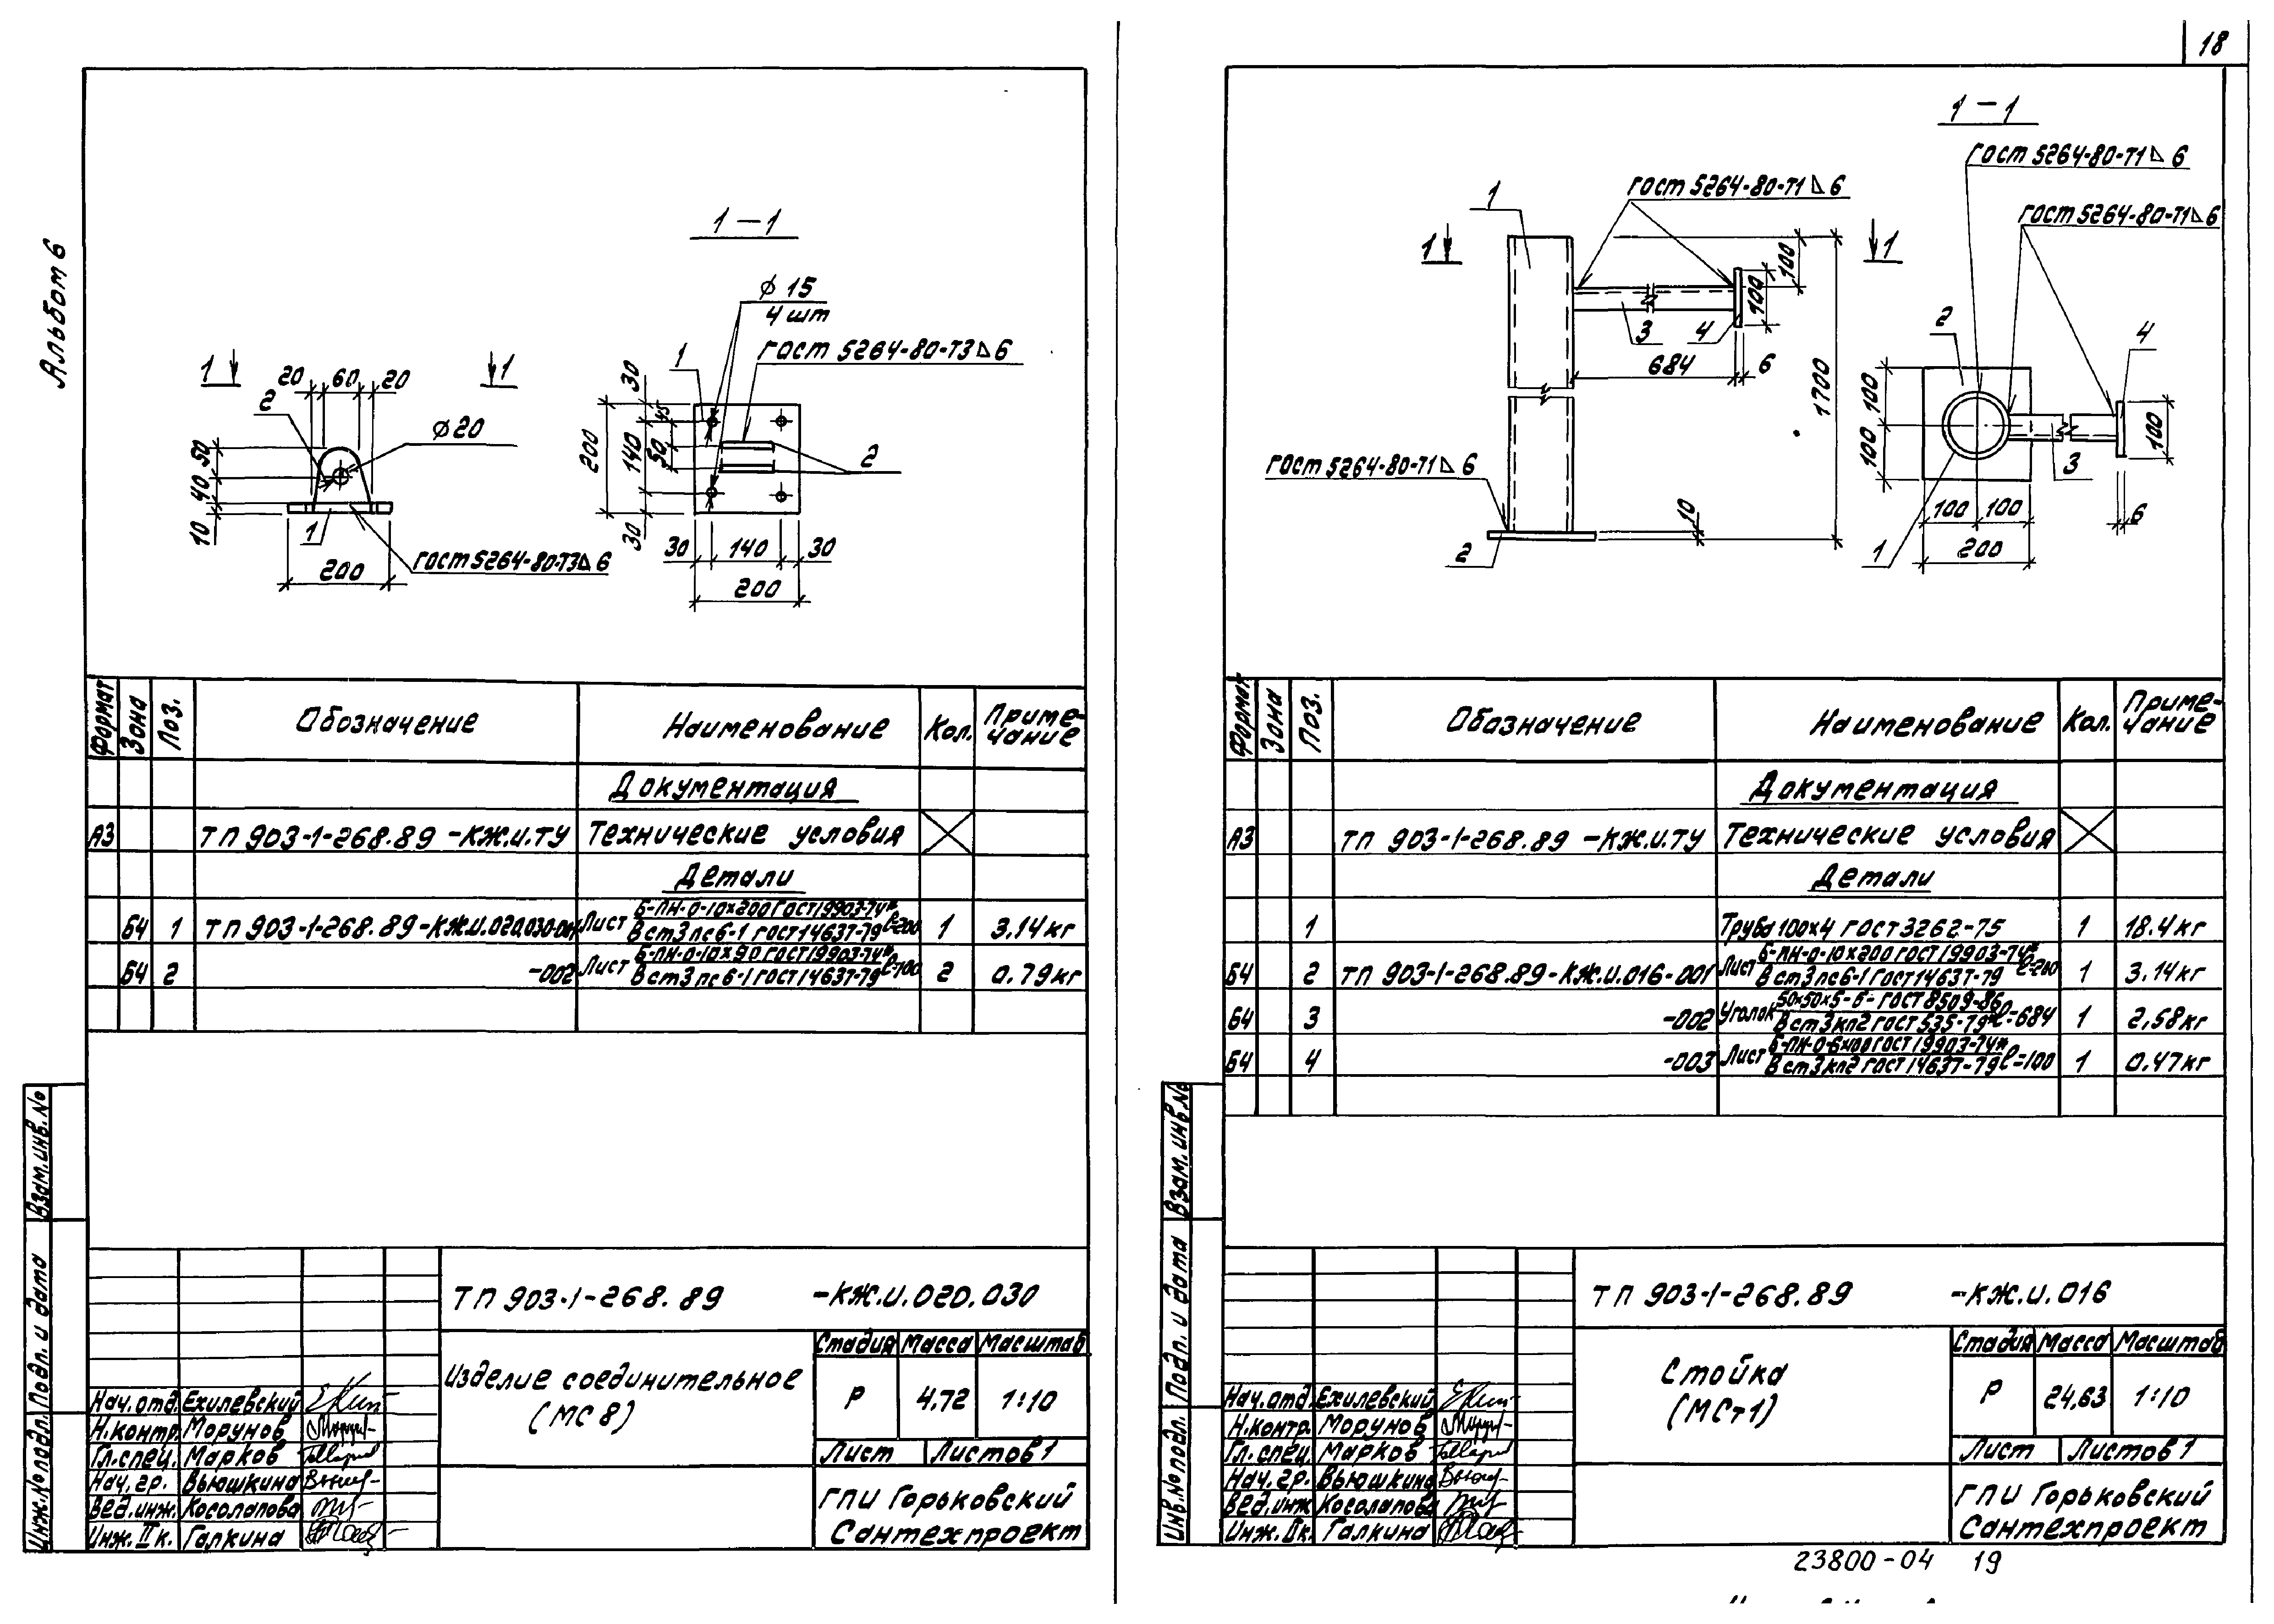 18
Альбом 6
1-1
1
1
20
60
20
2
ø20
50
40
10
1
200
ГОСТ 5264-80-Т3 6
ø 15
4 шт
ГОСТ 5264-80-Т3 6
1
2
30
45
200
140
50
30
30
140
30
200
Формат Зона Поз. Обозначение Наименование Кол. Примечание
Документация
А3 ТП 903-1-268.89 -КЖ.И.ТУ Технические условия
Детали
Б4 1 ТП 903-1-268.89-КЖ.И.020.030-001 Лист Б-ПН-0-10х200 ГОСТ 19903-74* ℓ=200 1 3.14кг
Вст3пс6-1 ГОСТ 14637-79
Б4 2 -002 Лист Б-ПН-0-10х90 ГОСТ 19903-74* ℓ=100 2 0.79кг
Вст3пс6-1 ГОСТ 14637-79
ТП 903-1-268.89 -КЖ.И.020.030
Изделие соединительное
(МС8)
Стадия Масса Масштаб
Р 4,72 1:10
Лист Листов 1
ГПИ Горьковский
Сантехпроект
Нач.отд. Ехилевский
Н.контр. Морунов
Гл.спец. Марков
Нач.гр. Вьюшкина
Вед.инж. Косолапова
Инж.IIк. Галкина
Взам.инв.№
Подп. и дата
Инж.№ подл.
1-1
ГОСТ 5264-80-Т1 6
ГОСТ 5264-80-Т1 6
ГОСТ 5264-80-Т1 6
1
1
1
100
100
3
4
684
6
1700
ГОСТ 5264-80-Т1 6
10
2
2
4
100
100
100
3
100
100
6
1
200
Формат Зона Поз. Обозначение Наименование Кол. Примечание
Документация
А3 ТП 903-1-268.89 -КЖ.И.ТУ Технические условия
Детали
1 Труба 100х4 ГОСТ 3262-75 1 18.4кг
Б4 2 ТП 903-1-268.89-КЖ.И.016-001 Лист Б-ПН-0-10х200 ГОСТ 19903-74* ℓ=200 1 3.14кг
Вст3пс6-1 ГОСТ 14637-79
Б4 3 -002 Уголок 50х50х5-Б-ГОСТ 8509-86 ℓ=684 1 2,58кг
Вст3кп2 ГОСТ 535-79*
Б4 4 -003 Лист Б-ПН-0-6х100 ГОСТ 19903-74* ℓ=100 1 0.47кг
Вст3кп2 ГОСТ 14637-79
ТП 903-1-268.89 -КЖ.И.016
Стойка
(МСт1)
Стадия Масса Масштаб
Р 24,63 1:10
Лист Листов 1
ГПИ Горьковский
Сантехпроект
Нач.отд. Ехилевский
Н.контр. Морунов
Гл.спец. Марков
Нач.гр. Вьюшкина
Вед.инж. Косолапова
Инж.IIк. Галкина
Взам.инв.№
Подп. и дата
Инв.№ подл.
23800-04 19